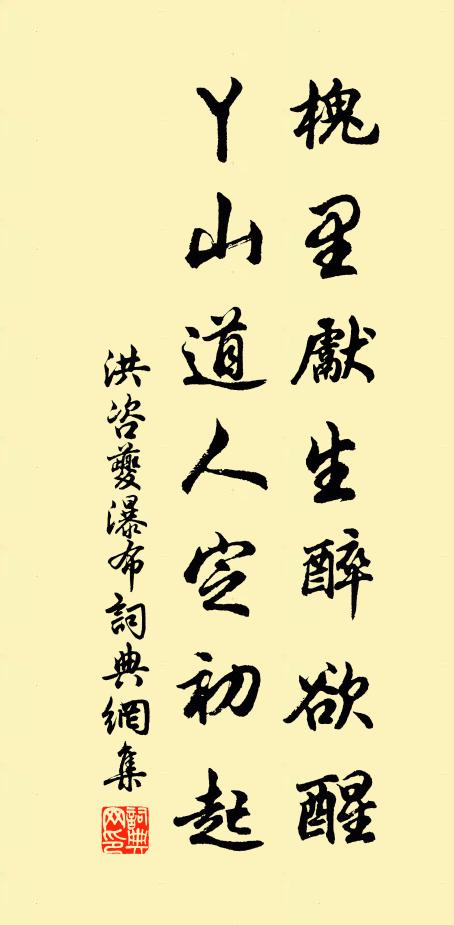 槐里獻生醉欲醒
丫山道人定初起
洪咨夔瀑布詞典網集
詞典網印